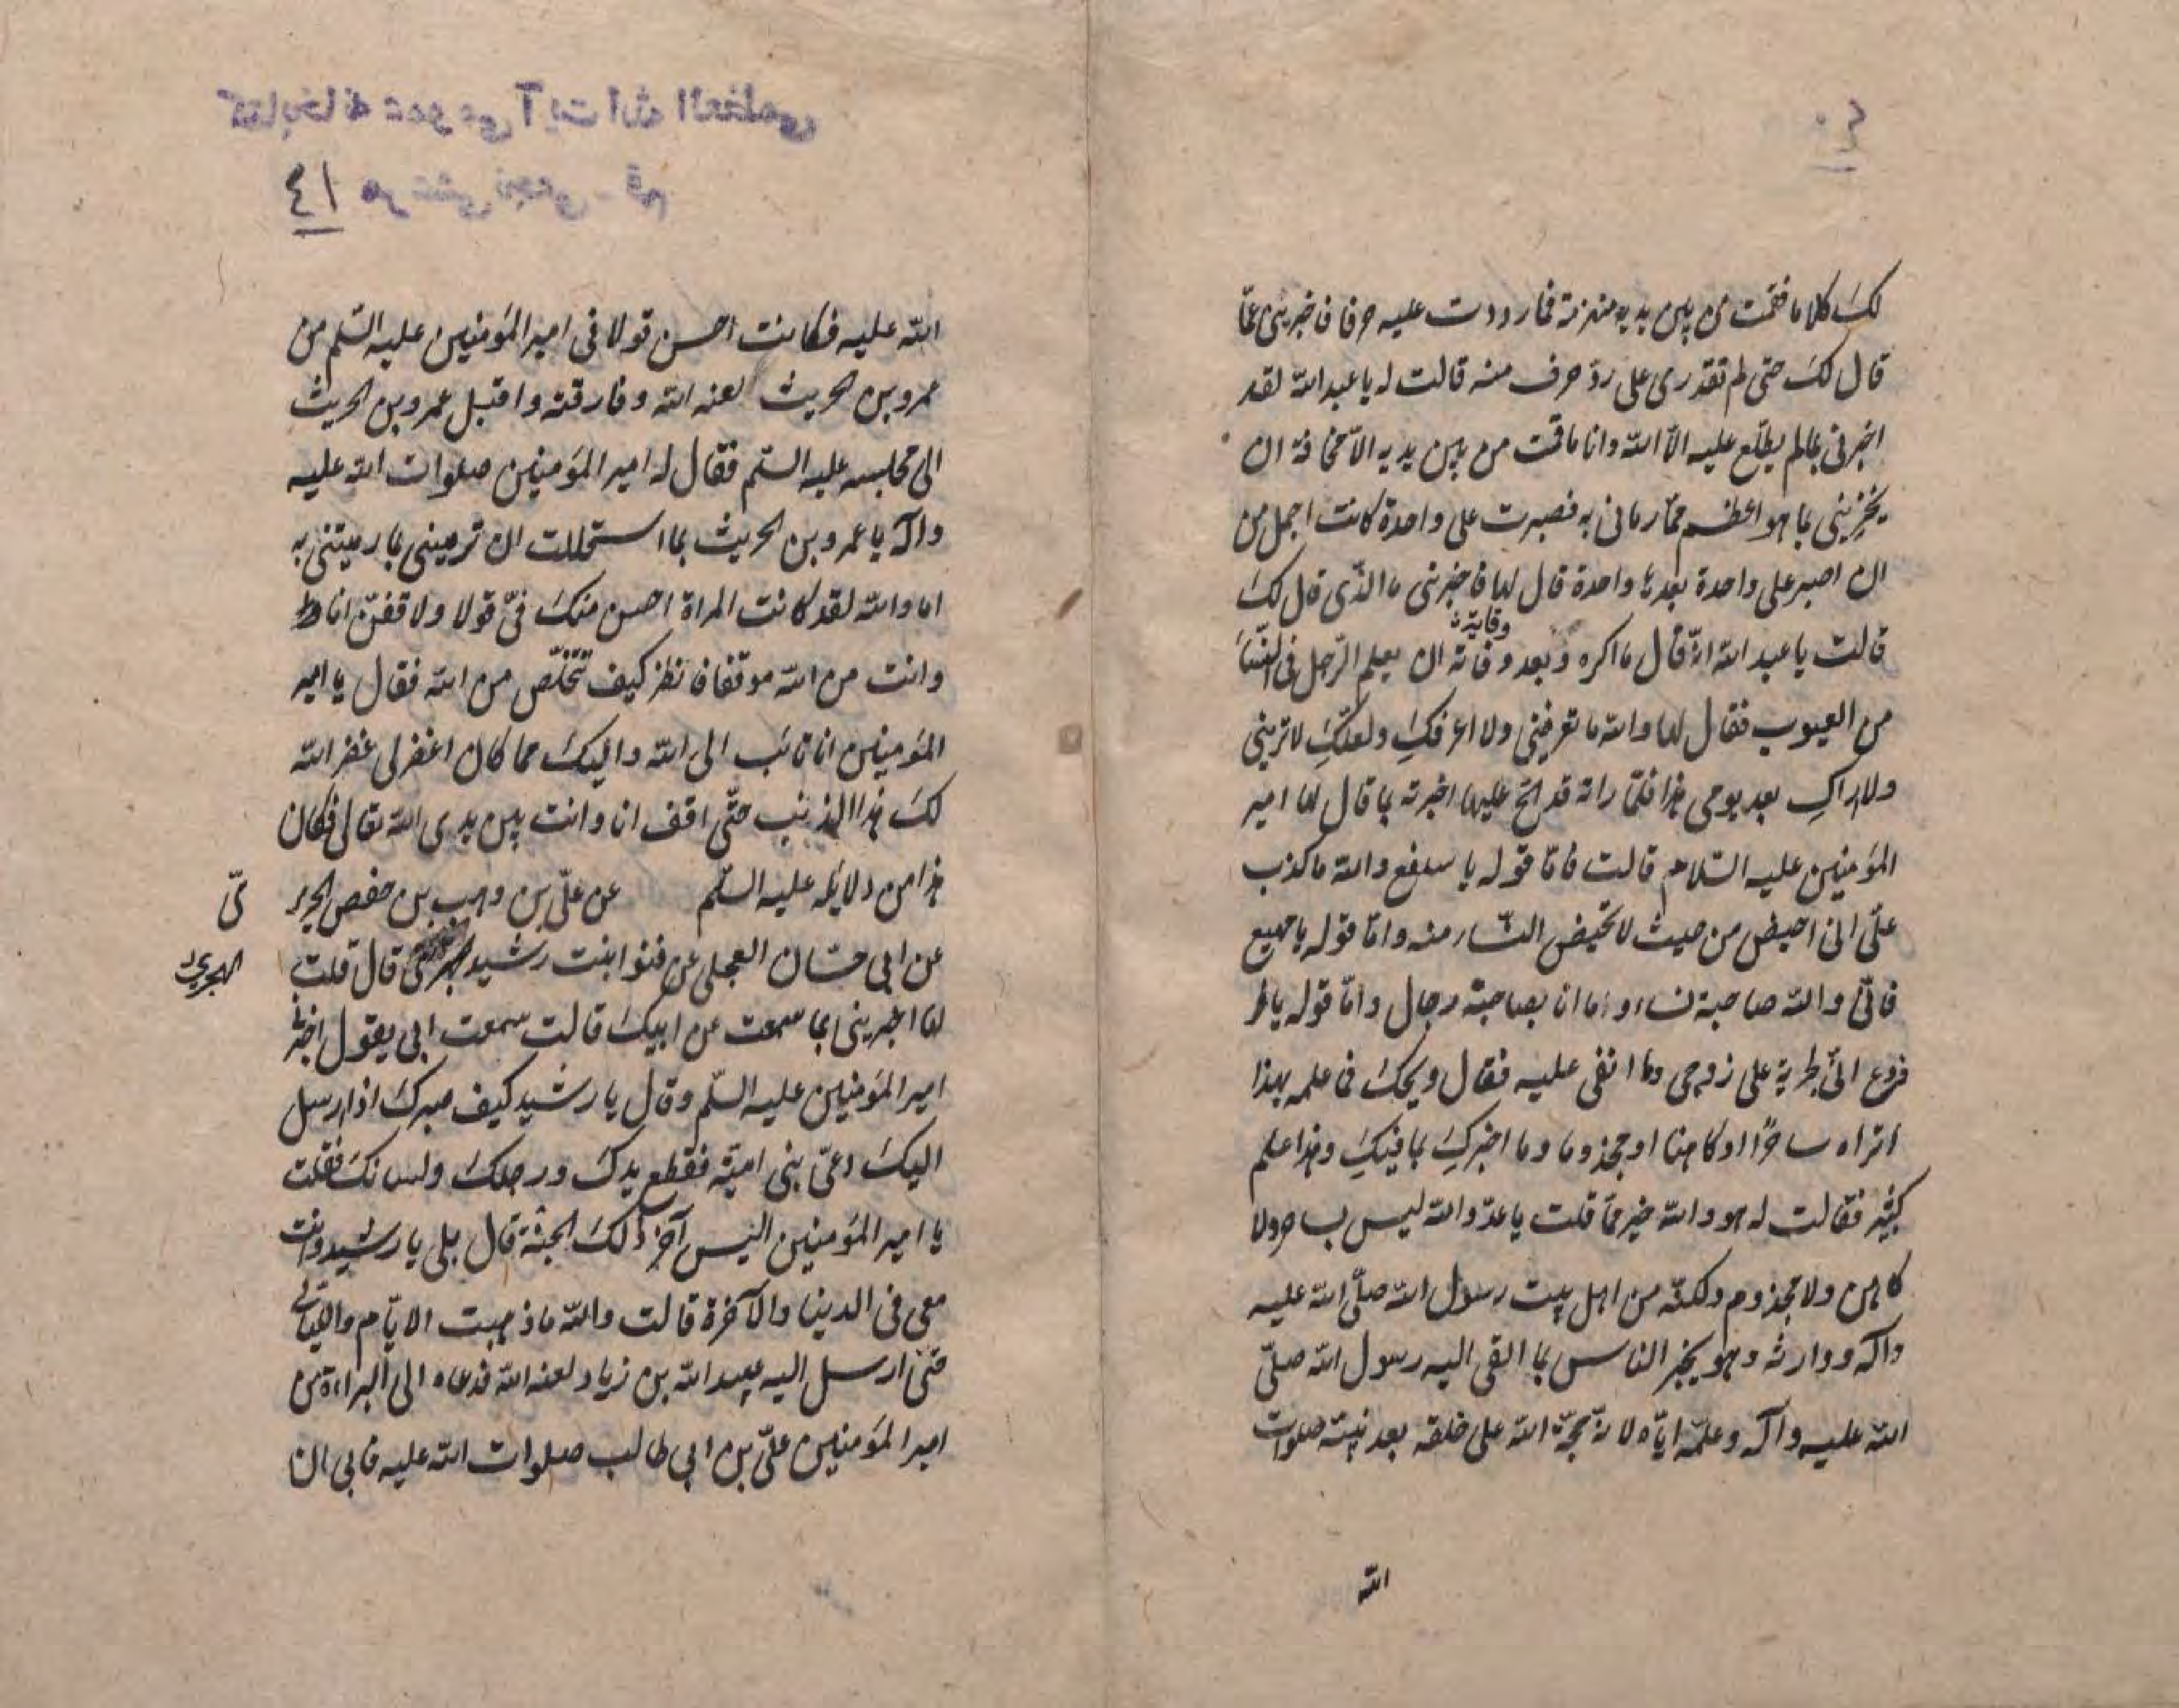 ٤٠
لك كلاما فقمت من بين يديه منهزمة فما رددت عليه حرفا فاخبرينى عمّا
قال لك حتى لم تقدرى على ردّ حرف منه قالت له يا عبد الله لقد
اخبرنى بما لم يطّلع عليه الّا الله وانا ما قمت من بين يديه الّا مخافة ان
يخبرنى بما هو اعظم ممّا رمانى به فصبرت على واحدة كانت اجمل من
ان اصبر على واحدة بعدها واحدة قال لها فاخبرينى ما الذّى قال لك
قالت يا عبد الله انّه قال ما اكره وبعد وفانه ان يعلم الرّجل ما فى النّساء
وقاية
من العيوب فقال لها والله ما تعرفينى ولا اعرفكِ ولعلّكِ لا ترينى
ولا اراكِ بعد يومى هذا فلمّا راته قد الحّ عليها اخبرته بما قال لها امير
المؤمنين عليه السّلام قالت فامّا قوله يا سلفع والله ما كذب
علىّ انى احيض من حيث لا تحيض النّساء منه وامّا قوله يا مهيع
فانّى والله صاحبة نساء وما انا بصاحبة رجال وامّا قوله يا قر
فروع انّى لمخربة على زوجى وما ابقى عليه فقال ويحك فما علمه بهذا
اتراه ساحرًا او كاهنا او مجذوما وما اخبركِ بما فيكِ وهذا علم
كثير فقالت له هو والله خير ممّا قلت يا عدوّ الله ليس بساحر ولا
كاهن ولا مجذوم ولكنّه من اهل بيت رسول الله صلّى الله عليه
وآله ووارثه وهو يخبر الناس بما القى اليه رسول الله صلّى
الله عليه وآله وعلّمه ايّاه لانّه حجّة الله على خلقه بعد نبيّه صلوات
الله
كتابخانه عمومى آيت الله العظمى
مرعشى نجفى - قم
٤١
الله عليه فكانت احسن قولا فى امير المؤمنين عليه السّلم من
عمرو بن حريث لعنه الله وفارقته واقبل عمرو بن الحريث
الى مجلسه عليه السّلم فقال له امير المؤمنين صلوات الله عليه
وآله يا عمرو بن الحريث بما استحللت ان ترمينى بما رميتنى به
اما والله لقد كانت المراة احسن منك فىّ قولا ولاقفنّ انا
وانت من الله موقفا فانظر كيف تتخلّص من الله فقال يا امير
المؤمنين انا تائب الى الله واليك مما كان اغفر لى غفر الله
لك هذا الذنب حتّى اقف انا وانت بين يدى الله تعالى فكان
هذا من دلايله عليه السّلم عن علىّ بن وهب بن حفص الجرير
ىّ
عن ابى حسّان العجلى عن قنوا بنت رشيد قال قلت
الهجرى
لها اخبرينى بما سمعت من ابيك قالت سمعت ابى يقول اخبرنى
امير المؤمنين عليه السّلم وقال يا رشيد كيف صبرك اذا ارسل
اليك دعىّ بنى اميّة فقطع يدك ورجلك ولسانك فقلت
يا امير المؤمنين اليس آخر ذلك الجنّة قال بلى يا رشيد وانت
معى فى الدينا والآخرة قالت والله ما ذهبت الايّام والليالى
حتى ارسل اليه عبيد الله بن زياد لعنه الله فدعاه الى البراءة من
امير المؤمنين علىّ بن ابى طالب صلوات الله عليه فابى ان